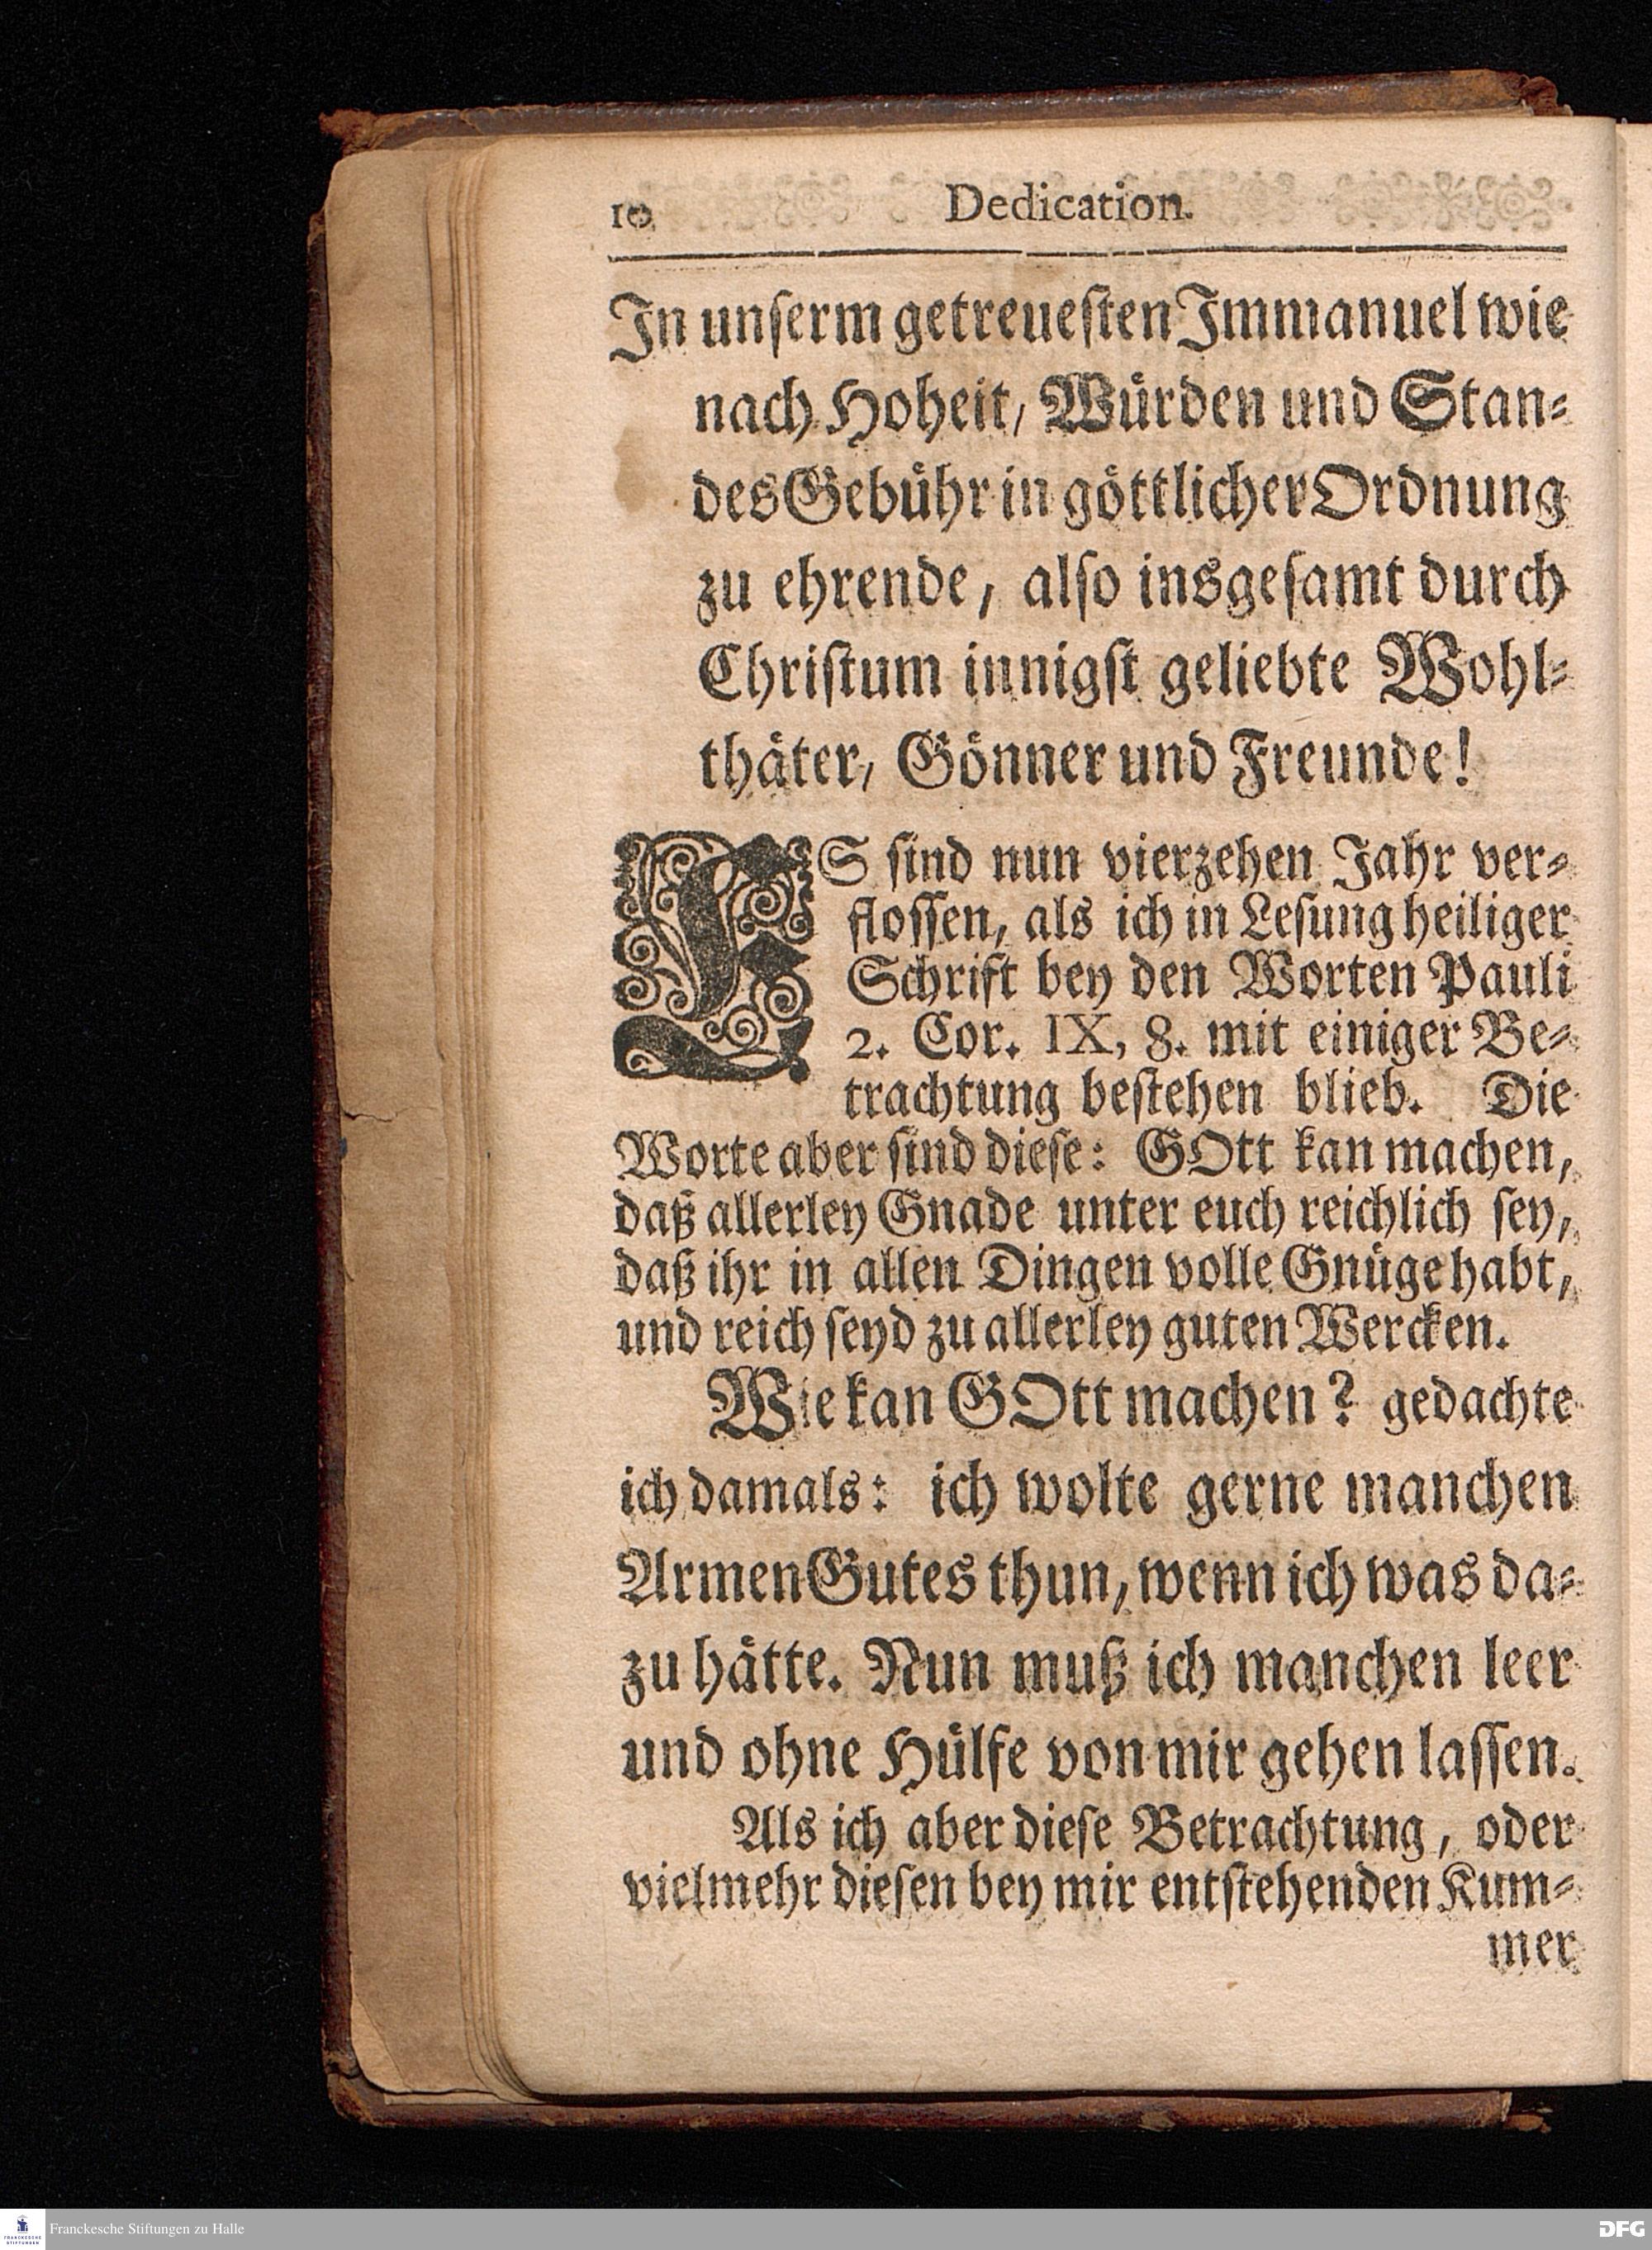 10 Dedication.
In unserm getreuesten Immanuel wie
nach Hoheit, Würden und Stan-
des Gebühr in göttlicher Ordnung
zu ehrende, also insgesamt durch
Christum innigst geliebte Wohl-
thäter, Gönner und Freunde!
ES sind nun vierzehen Jahr ver-
flossen, als ich in Lesung heiliger
Schrift bey den Worten Pauli
2. Cor. IX, 8. mit einiger Be-
trachtung bestehen blieb. Die
Worte aber sind diese: GOtt kan machen,
daß allerley Gnade unter euch reichlich sey,
daß ihr in allen Dingen volle Gnüge habt,
und reich seyd zu allerley guten Wercken.
Wie kan GOtt machen? gedachte
ich damals: ich wolte gerne manchen
Armen Gutes thun, wenn ich was da-
zu hätte. Nun muß ich manchen leer
und ohne Hülfe von mir gehen lassen.
Als ich aber diese Betrachtung, oder
vielmehr diesen bey mir entstehenden Kum-
mer
FRANCKESCHE
STIFTUNGEN
Franckesche Stiftungen zu Halle
DFG